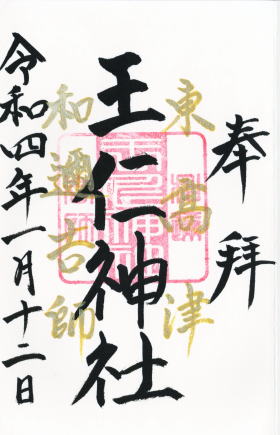 奉拝
東高津
王仁神社
和邇吉師
令和四年一月十二日